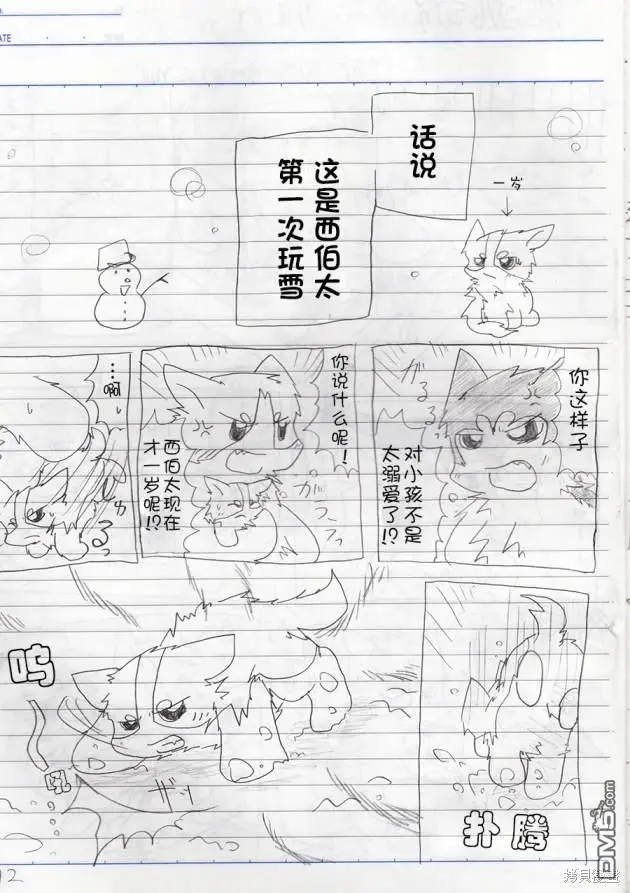 ATE
话说
这是西伯太
第一次玩雪
一岁
你这样子
对小孩不是
太溺爱了!?
がるるる
你说什么呢!
西伯太现在
才一岁呢!?
…啊
扑腾
呜
吼
ザッ
12
DM5.com
拷贝漫画